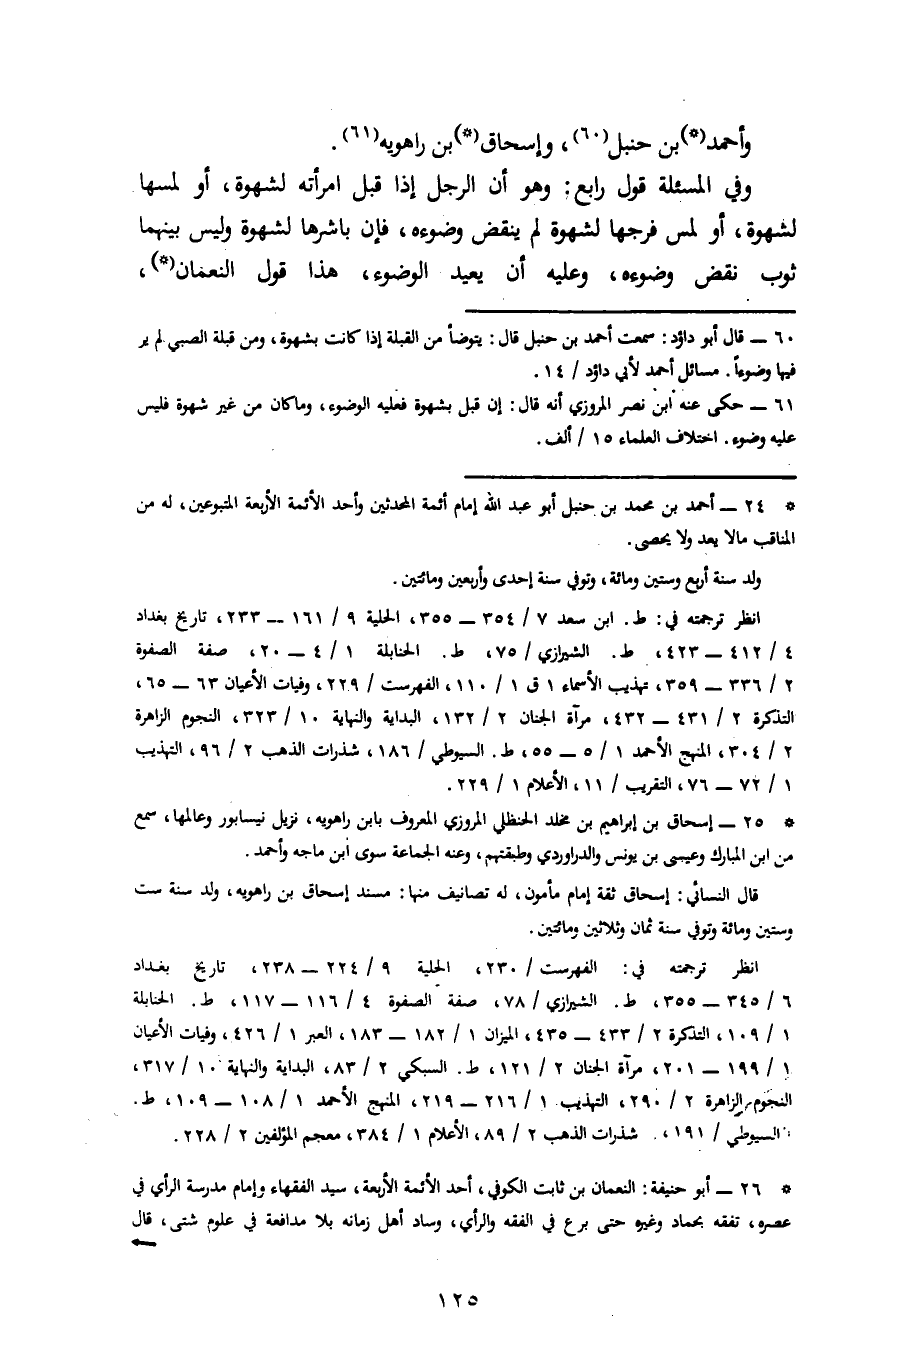 وأحمد(*)بن حنبل(٦٠)، وإسحاق(*)بن راهويه(٦١).
وفي المسئلة قول رابع: وهو أن الرجل إذا قبل امرأته لشهوة، أو لمسها
لشهوة، أو لمس فرجها لشهوة لم ينقض وضوءه، فإن باشرها لشهوة وليس بينهما
ثوب نقض وضوءه، وعليه أن يعيد الوضوء، هذا قول النعمان(*)،
٦٠ ــ قال أبو داؤد: سمعت أحمد بن حنبل قال: يتوضأ من القبلة إذا كانت بشهوة، ومن قبلة الصبي لم ير
فيها وضوءاً. مسائل أحمد لأبي داؤد / ١٤.
٦١ ــ حكى عنه ابن نصر المروزي أنه قال: إن قبل بشهوة فعليه الوضوء، وماكان من غير شهوة فليس
عليه وضوء. اختلاف العلماء ١٥ / ألف.
* ٢٤ ــ أحمد بن محمد بن حنبل أبو عبد الله إمام أئمة المحدثين وأحد الأئمة الأربعة المتبوعين، له من
المناقب مالا يعد ولا يحصى.
ولد سنة أربع وستين ومائة، وتوفي سنة إحدى وأربعين ومائتين.
انظر ترجمته في: ط. ابن سعد ٧ / ٣٥٤ ــ ٣٥٥، الحلية ٩ / ١٦١ ــ ٢٣٣، تاريخ بغداد
٤ / ٤١٢ ــ ٤٢٣، ط. الشيرازي / ٧٥، ط. الحنابلة ١ / ٤ ــ ٢٠، صفة الصفوة
٢ / ٣٣٦ ــ ٣٥٩، تهذيب الأسماء ١ ق ١ / ١١٠، الفهرست / ٢٢٩، وفيات الأعيان ٦٣ ــ ٦٥،
التذكرة ٢ / ٤٣١ ــ ٤٣٢، مرآة الجنان ٢ / ١٣٢، البداية والنهاية ١٠ / ٣٢٣، النجوم الزاهرة
٢ / ٣٠٤، المنهج الأحمد ١ / ٥ ــ ٥٥، ط. السيوطي / ١٨٦، شذرات الذهب ٢ / ٩٦، التهذيب
١ / ٧٢ ــ ٧٦، التقريب / ١١، الأعلام ١ / ٢٢٩.
* ٢٥ ــ إسحاق بن إبراهيم بن مخلد الحنظلي المروزي المعروف بابن راهويه، نزيل نيسابور وعالمها، سمع
من ابن المبارك وعيسى بن يونس والدراوردي وطبقتهم، وعنه الجماعة سوى ابن ماجه وأحمد.
قال النسائي: إسحاق ثقة إمام مأمون، له تصانيف منها: مسند إسحاق بن راهويه، ولد سنة ست
وستين ومائة وتوفي سنة ثمان وثلاثين ومائتين.
انظر ترجمته في: الفهرست / ٢٣٠، الحلية ٩ / ٢٢٤ ــ ٢٣٨، تاريخ بغداد
٦ / ٣٤٥ ــ ٣٥٥، ط. الشيرازي / ٧٨، صفة الصفوة ٤ / ١١٦ ــ ١١٧، ط. الحنابلة
١ / ١٠٩، التذكرة ٢ / ٤٣٣ ــ ٤٣٥، الميزان ١ / ١٨٢ ــ ١٨٣، العبر ١ / ٤٢٦، وفيات الأعيان
١ / ١٩٩ ــ ٢٠١، مرآة الجنان ٢ / ١٢١، ط. السبكي ٢ / ٨٣، البداية والنهاية ١٠ / ٣١٧،
النجوم الزاهرة ٢ / ٢٩٠، التهذيب ١ / ٢١٦ ــ ٢١٩، المنهج الأحمد ١ / ١٠٨ ــ ١٠٩، ط.
السيوطي / ١٩١، شذرات الذهب ٢ / ٨٩، الأعلام ١ / ٣٨٤، معجم المؤلفين ٢ / ٢٢٨.
* ٢٦ ــ أبو حنيفة: النعمان بن ثابت الكوفي، أحد الأئمة الأربعة، سيد الفقهاء وإمام مدرسة الرأي في
عصره، تفقه بحماد وغيره حتى برع في الفقه والرأي، وساد أهل زمانه بلا مدافعة في علوم شتى، قال
١٢٥